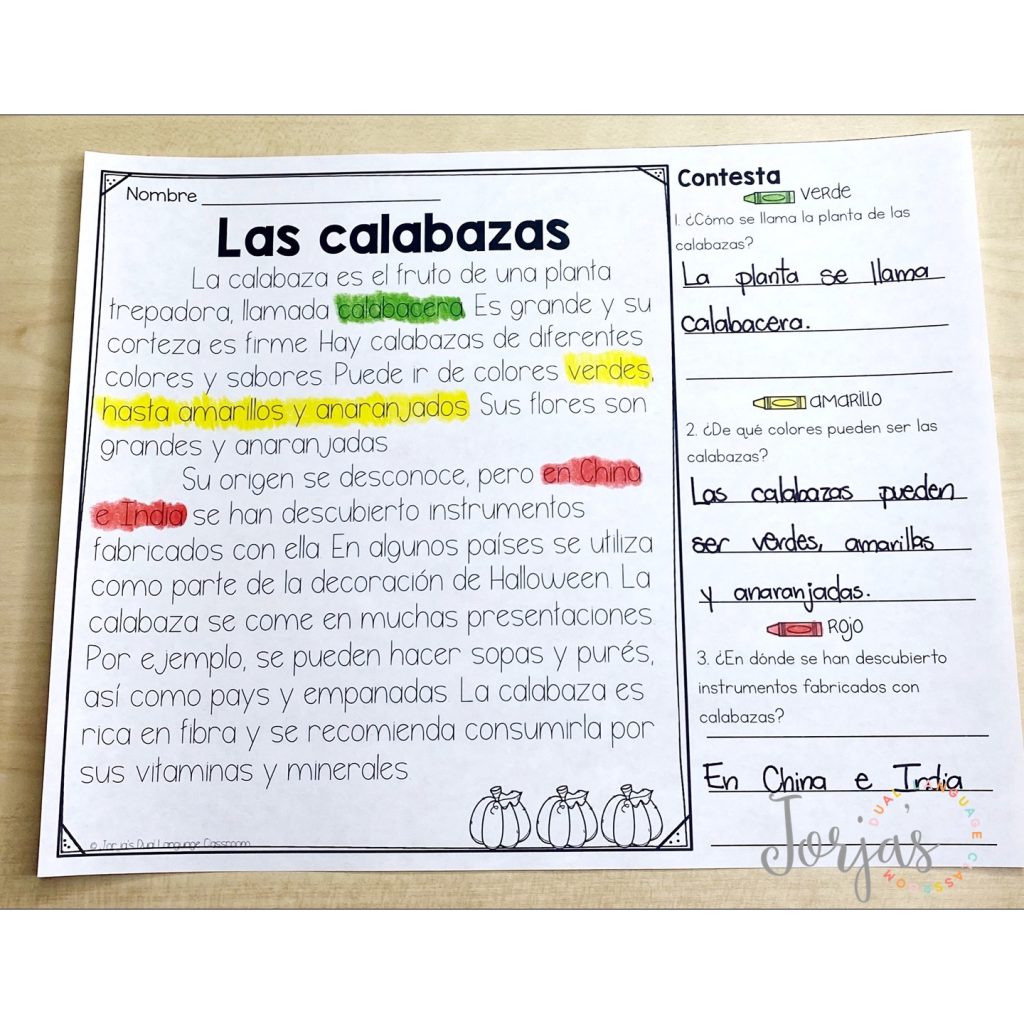 Nombre
Las calabazas
La calabaza es el fruto de una planta
trepadora, llamada calabacera. Es grande y su
corteza es firme. Hay calabazas de diferentes
colores y sabores. Puede ir de colores verdes,
hasta amarillos y anaranjados. Sus flores son
grandes y anaranjadas.
Su origen se desconoce, pero en China
e India se han descubierto instrumentos
fabricados con ella. En algunos países se utiliza
como parte de la decoración de Halloween. La
calabaza se come en muchas presentaciones.
Por ejemplo, se pueden hacer sopas y purés,
así como pays y empanadas. La calabaza es
rica en fibra y se recomienda consumirla por
sus vitaminas y minerales.
© Jorja's Dual Language Classroom
Contesta
verde
1. ¿Cómo se llama la planta de las
calabazas?
La planta se llama
calabacera.
amarillo
2. ¿De qué colores pueden ser las
calabazas?
Las calabazas pueden
ser verdes, amarillas
y anaranjadas.
rojo
3. ¿En dónde se han descubierto
instrumentos fabricados con
calabazas?
En China e India
Jorja's
DUAL LANGUAGE CLASSROOM